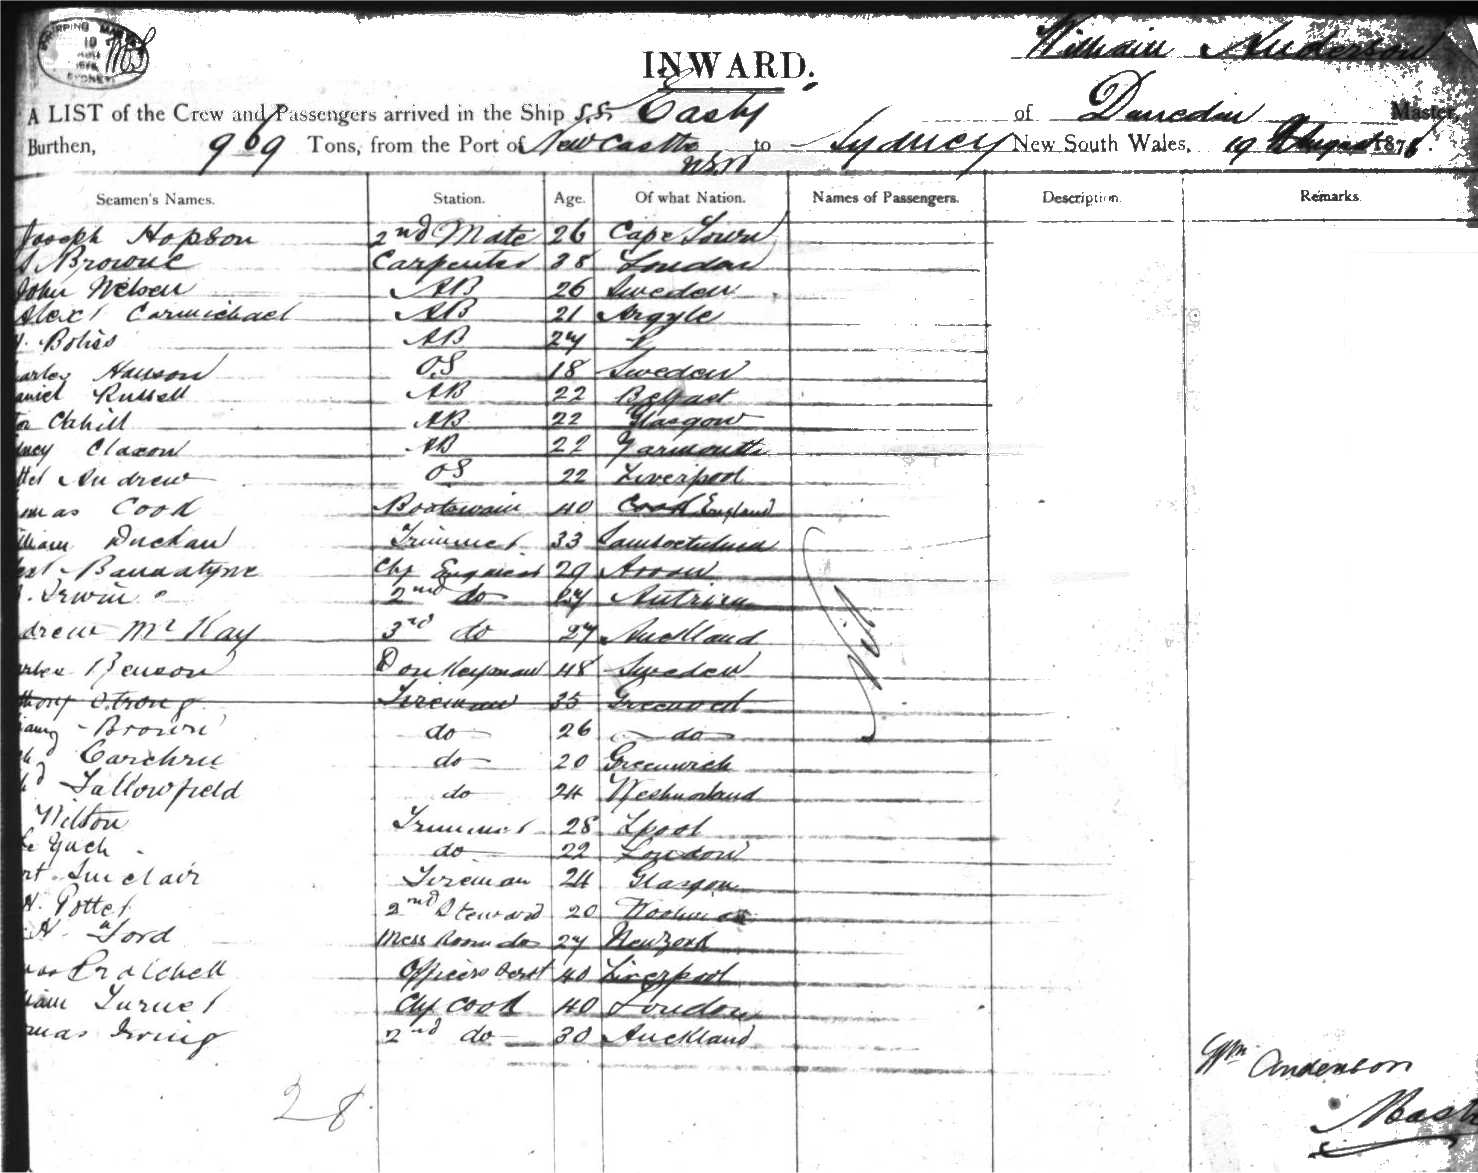 SHIPPING MASTER
19
SYDNEY
William Anderson
INWARD.
A LIST of the Crew and Passengers arrived in the Ship S.S. of Dunedin Master,
Burthen, 969 Tons, from the Port of Newcastle NSW to Sydney New South Wales, 19 August 1876.
Seamen's Names. Station. Age. Of what Nation. Names of Passengers. Description. Remarks.
Joseph Hopson 2nd Mate 26 Cape Town
Browne Carpenter 38 London
John Nelsen AB 26 Sweden
Alext Carmichael AB 21 Argyle
AB 27
arley Hanson O.S 18 Sweden
aniel Russell AB 22 Belfast
Cahill AB 22 Glasgow
Claxon AB 22 Yarmouth
Andrew OS 22 Liverpool
omas Cook Boatswain 40 England
lliam Duckan Trimmer 33
Bannatyne Chf Engineer 29 Arran
Irwin 2nd do 27 Antrim
drew McKay 3rd do 27 Auckland
arles Benson Donkeyman 48 Sweden
thony Strong Fireman 35
Brown do 26 do
do 20 Greenwich
Tallowfield do 24 Westmorland
Wilson Trimmer 28 Lpool
do 22 London
rt Sinclair Fireman 24 Glasgow
H. Potter 2nd Steward 20 Woolwich
H Ford Mess Room do 27 New York
Pratchell Officers Servt 40 Liverpool
liam Turner Chf Cook 40 London
omas Irving 2nd do 30 Auckland
Nil
28
Wm Anderson
Mast